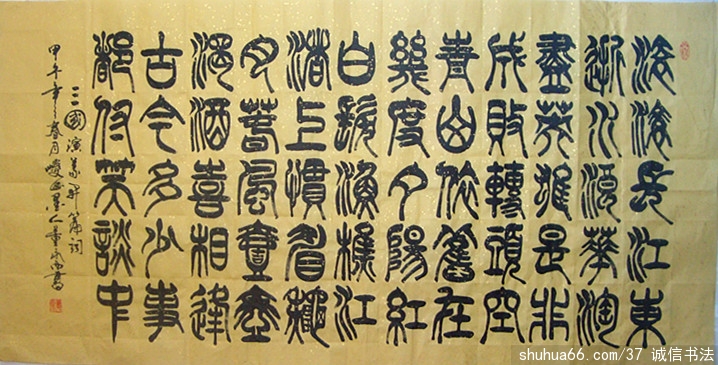 滾滾長江東
逝水浪華淘
盡英雄是非
成敗轉頭空
青山依舊在
幾度夕陽紅
白髮漁樵江
渚上慣看龝
月春風壹壺
濁酒喜相逢
古今多少事
都付笑談中
三國演義開篇詞
甲午年春月
shuhua66.com/37 诚信书法